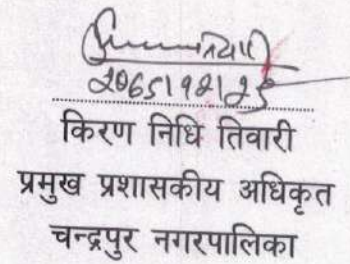 किरण निधि तिवारी
प्रमुख प्रशासकीय अधिकृत
चन्द्रपुर नगरपालिका